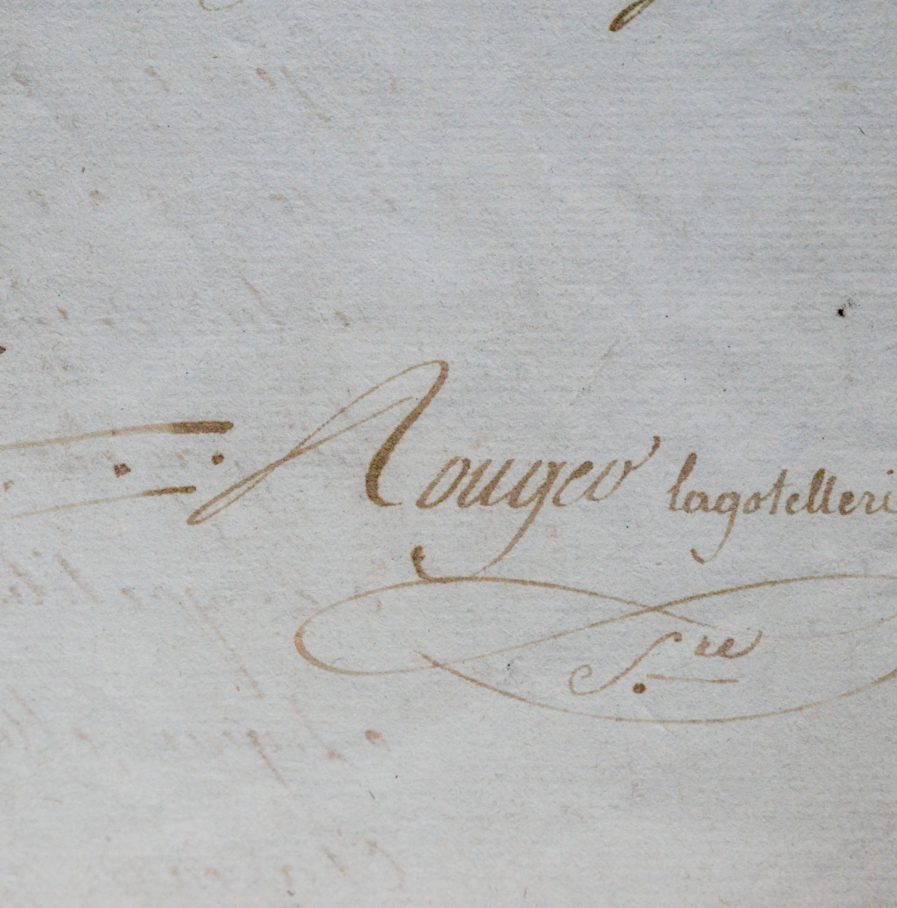 Rougeo lagotelleri
S.re